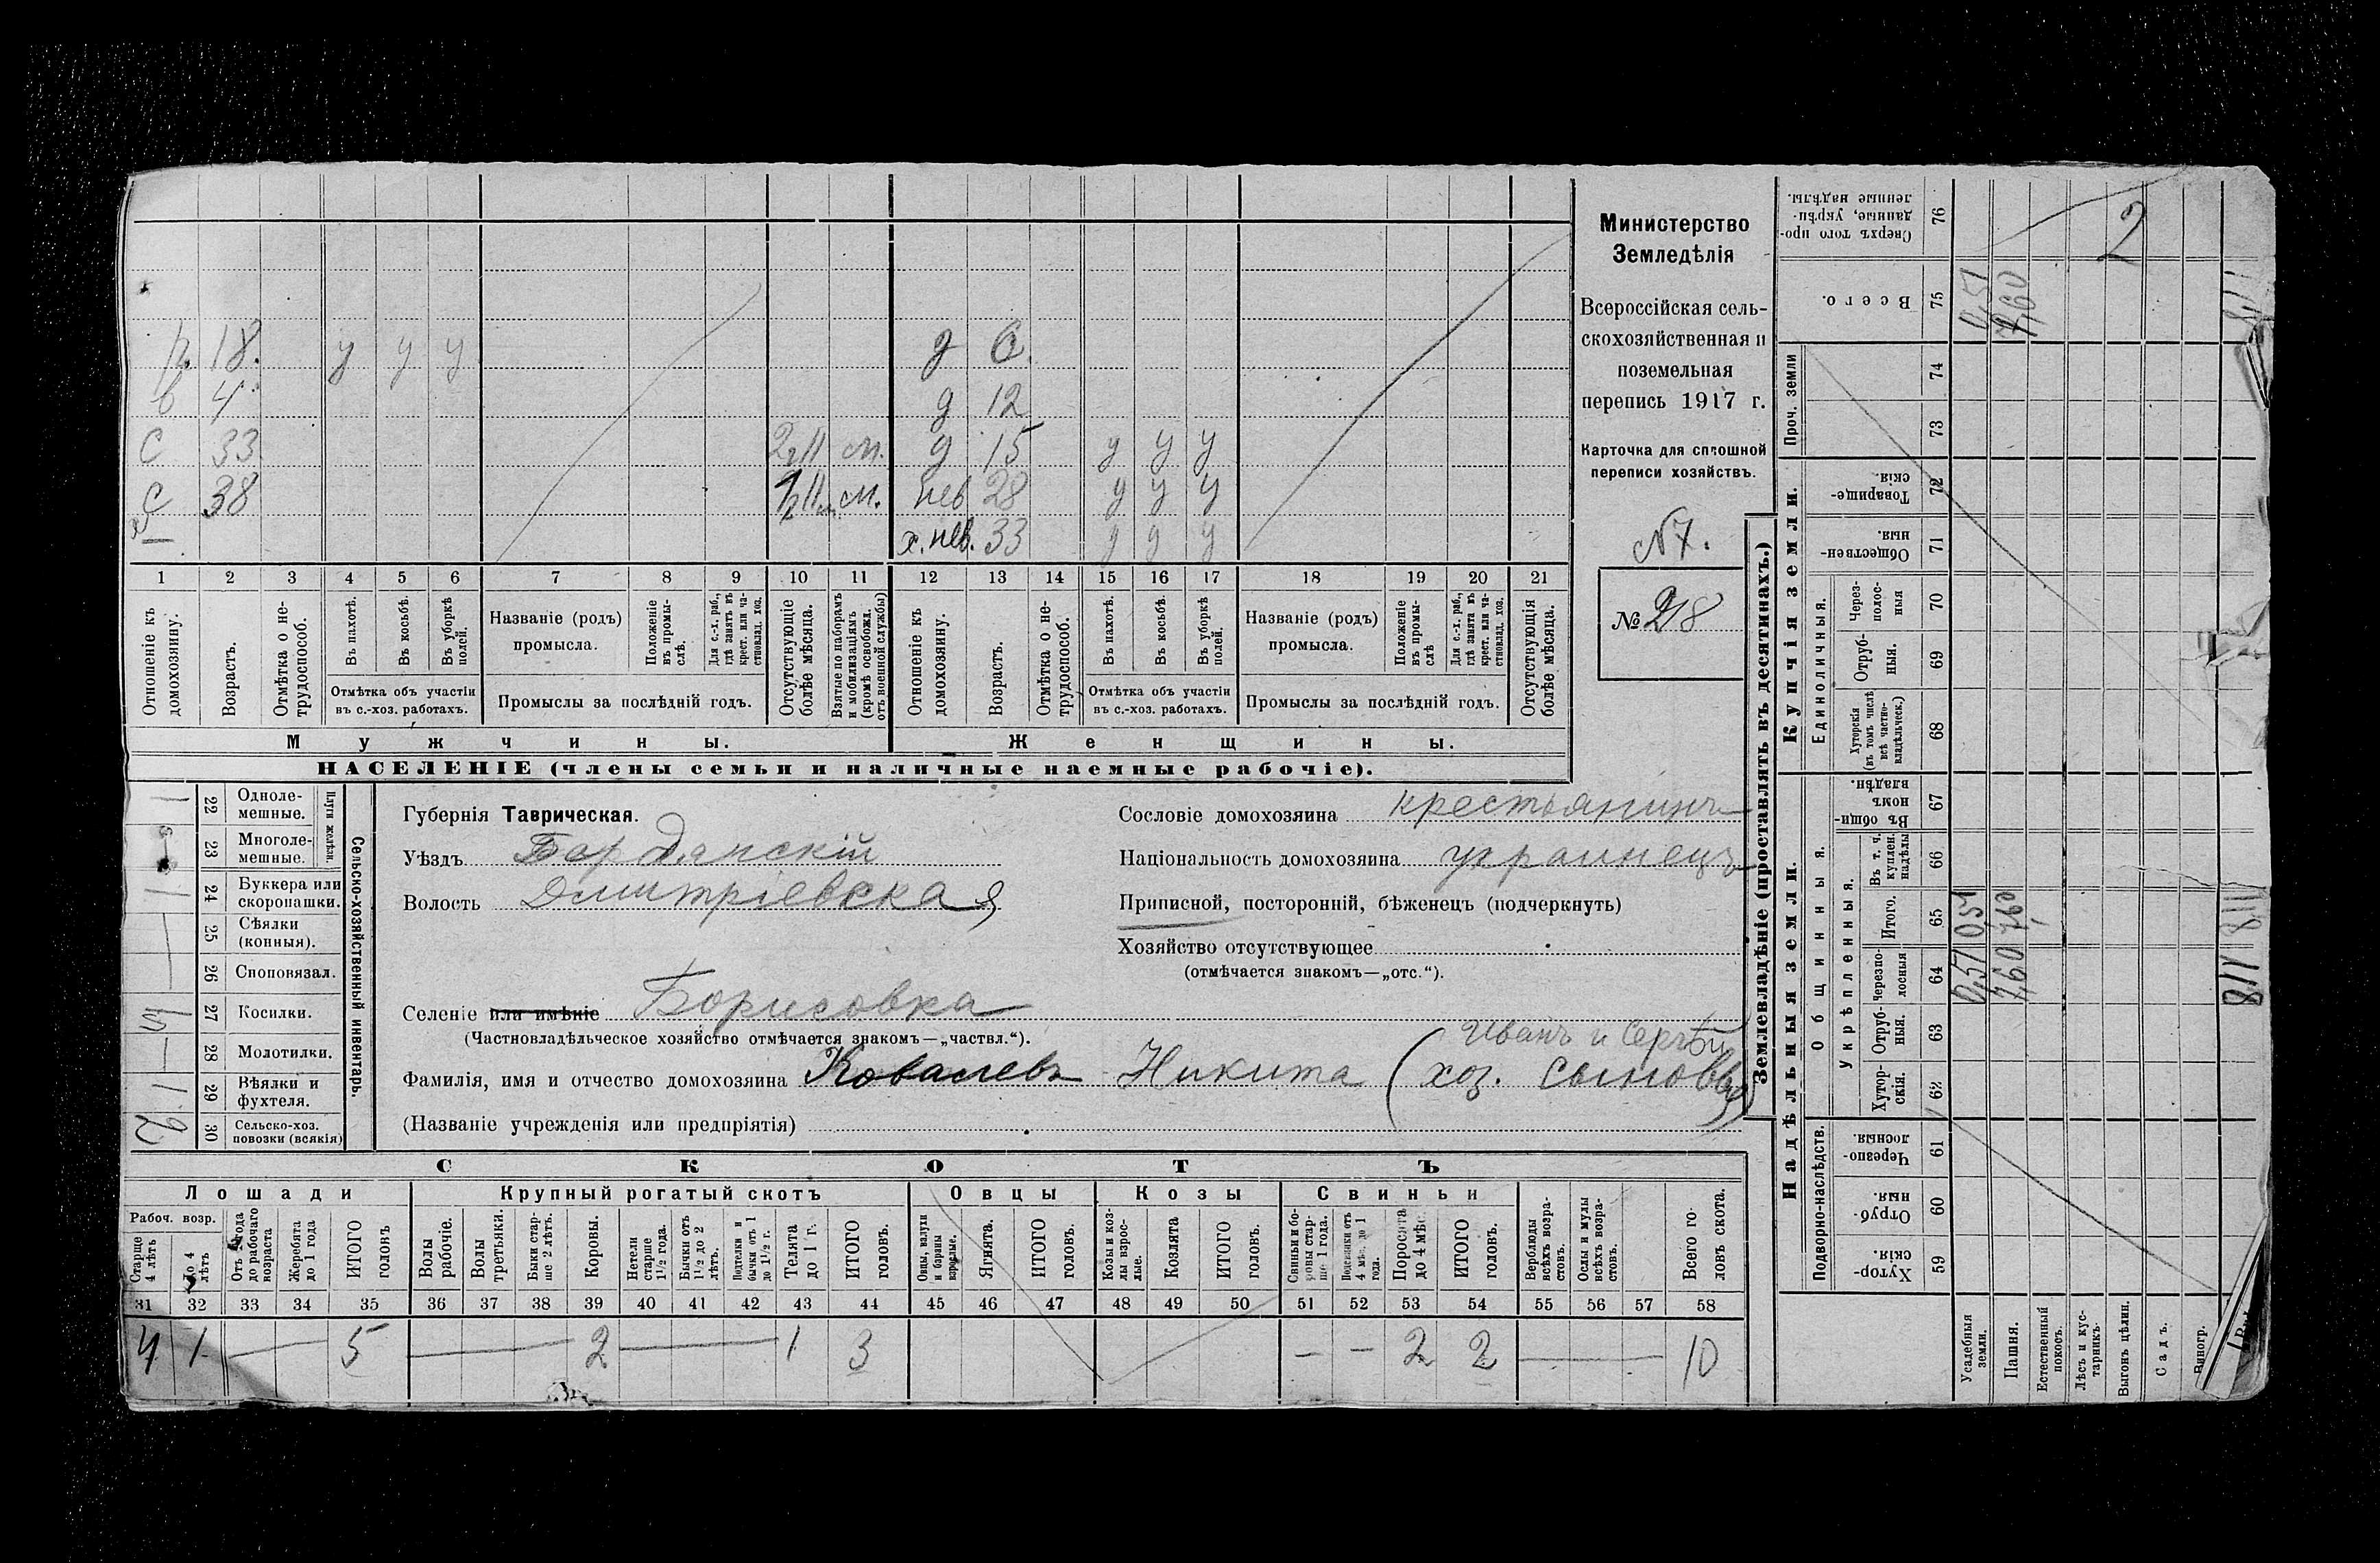 Министерство
Земледѣлія
Всероссійская сель-
скохозяйственная и
поземельная
перепись 1917 г.
Карточка для сплошной
переписи хозяйствъ.
N 7.
№ 218
18. у у у д 6.
в 4 д 12
с 33 м. д 15 у у у
с 38 м. нев 28 у у у
х. нев. 33 у у у
1 2 3 4 5 6 7 8 9 10 11 12 13 14 15 16 17 18 19 20 21
Отношеніе къ домохозяину.
Возрастъ.
Отмѣтка о не-трудоспособ.
Въ пахотѣ.
Въ косьбѣ.
Въ уборкѣ полей.
Отмѣтка объ участіи въ с.-хоз. работахъ.
Названіе (родъ) промысла.
Положеніе въ промы-слѣ.
Для с.-х. раб., гдѣ занятъ въ крест. или ча-стновлад. хоз.
Промыслы за послѣдній годъ.
Отсутствующіе болѣе мѣсяца.
Взятые по наборамъ и мобилизаціямъ (кромѣ освобожд. отъ военной службы)
Отношеніе къ домохозяину.
Возрастъ.
Отмѣтка о не-трудоспособ.
Въ пахотѣ.
Въ косьбѣ.
Въ уборкѣ полей.
Отмѣтка объ участіи въ с.-хоз. работахъ.
Названіе (родъ) промысла.
Положеніе въ промы-слѣ
Для с.-х. раб., гдѣ занята въ крест. или ча-стновлад. хоз.
Промыслы за послѣдній годъ.
Отсутствующія болѣе мѣсяца.
Мужчины. Женщины.
НАСЕЛЕНІЕ (члены семьи и наличные наемные рабочіе).
Сельско-хозяйственный инвентарь.
Плуги желѣзн.
22 Одноле-мешные. 1
23 Многоле-мешные.
24 Буккера или скоропашки. 1
25 Сѣялки (конныя). —
26 Сноповязал. —
27 Косилки.
28 Молотилки. —
29 Вѣялки и фухтеля. 1
30 Сельско-хоз. повозки (всякія) 2
Губернія Таврическая.
Уѣздъ Бердянскій
Волость Дмитріевская
Селеніе или имѣніе Борисовка
(Частновладѣльческое хозяйство отмѣчается знакомъ—„частвл.“).
Сословіе домохозяина крестьянинъ
Національность домохозяина украинецъ
Приписной, посторонній, бѣженецъ (подчеркнуть)
Хозяйство отсутствующее
(отмѣчается знакомъ—„отс.“).
Иванъ и Сергѣй
Фамилія, имя и отчество домохозяина Ковалевъ Никита (хоз. сыновья)
(Названіе учрежденія или предпріятія)
СКОТЪ
Лошади Крупный рогатый скотъ Овцы Козы Свиньи
Рабоч. возр.
Старше 4 лѣтъ
До 4 лѣтъ
Отъ 1 года до рабочаго возраста
Жеребята до 1 года
ИТОГО головъ
Волы рабочіе.
Волы третьяки.
Быки стар-ше 2 лѣтъ.
Коровы.
Нетели старше 1 1/2 года.
Бычки отъ 1 1/2 до 2 лѣтъ.
Подтелки и бычки отъ 1 до 1 1/2 г.
Телята до 1 г.
ИТОГО головъ.
Овцы, валухи и бараны взрослые.
Ягнята.
ИТОГО головъ.
Козы и коз-лы взрос-лые.
Козлята
ИТОГО головъ.
Свиньи и бо-ровы стар-ше 1 года.
Подсвинки отъ 4 мѣс. до 1 года.
Поросята до 4 мѣс.
ИТОГО головъ.
Верблюды всѣхъ возра-стовъ.
Ослы и мулы всѣхъ возра-стовъ.
Всего го-ловъ скота.
31 32 33 34 35 36 37 38 39 40 41 42 43 44 45 46 47 48 49 50 51 52 53 54 55 56 57 58
4 1 — 5 — 2 — 1 3 — — 2 2 — 10
Землевладѣніе (проставлять въ десятинахъ.)
Надѣльныя земли.
Подворно-наслѣдств.
Хутор-скія. 59
Отруб-ныя. 60
Черезпо-лосныя. 61
Общинныя.
Укрѣпленныя.
Хутор-скія. 62
Отруб-ныя. 63
Черезпо-лосныя 64
Итого. 65
Въ т. ч. куплен. надѣлы 66
Въ общи-номъ владѣн. 67
Купчія земли.
Единоличныя.
Хуторскія (въ томъ числѣ всѣ частно-владѣльческ.) 68
Отруб-ныя. 69
Через-полос-ныя 70
Обществен-ныя. 71
Товарище-скія. 72
Проч. земли
73 74
Всего. 75
Сверхъ того про-данные, укрѣп-ленные надѣлы. 76
Усадебныя земли. 0,51 0,51 0,51
Пашня. 7,60 7,60 7,60
Естественный покосъ.
Лѣсъ и кус-тарникъ.
Выгонъ цѣлин. 2
Садъ.
Виногр.
8,11 8,11 8,11